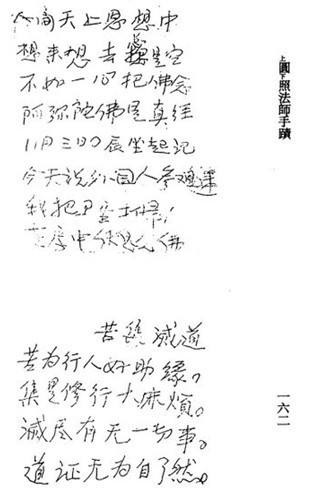 上圓下照法師手蹟
天上思想中
想来想去是空
不如一心把佛念
阿弥陀佛是真经
11月3日晨坐起记
今天说外国人参观
我把卫室打扫
中佛
苦集滅道
苦为行人好助緣。
集是修行大麻煩。
滅尽有无一切事。
道证无为自了然。
一六二